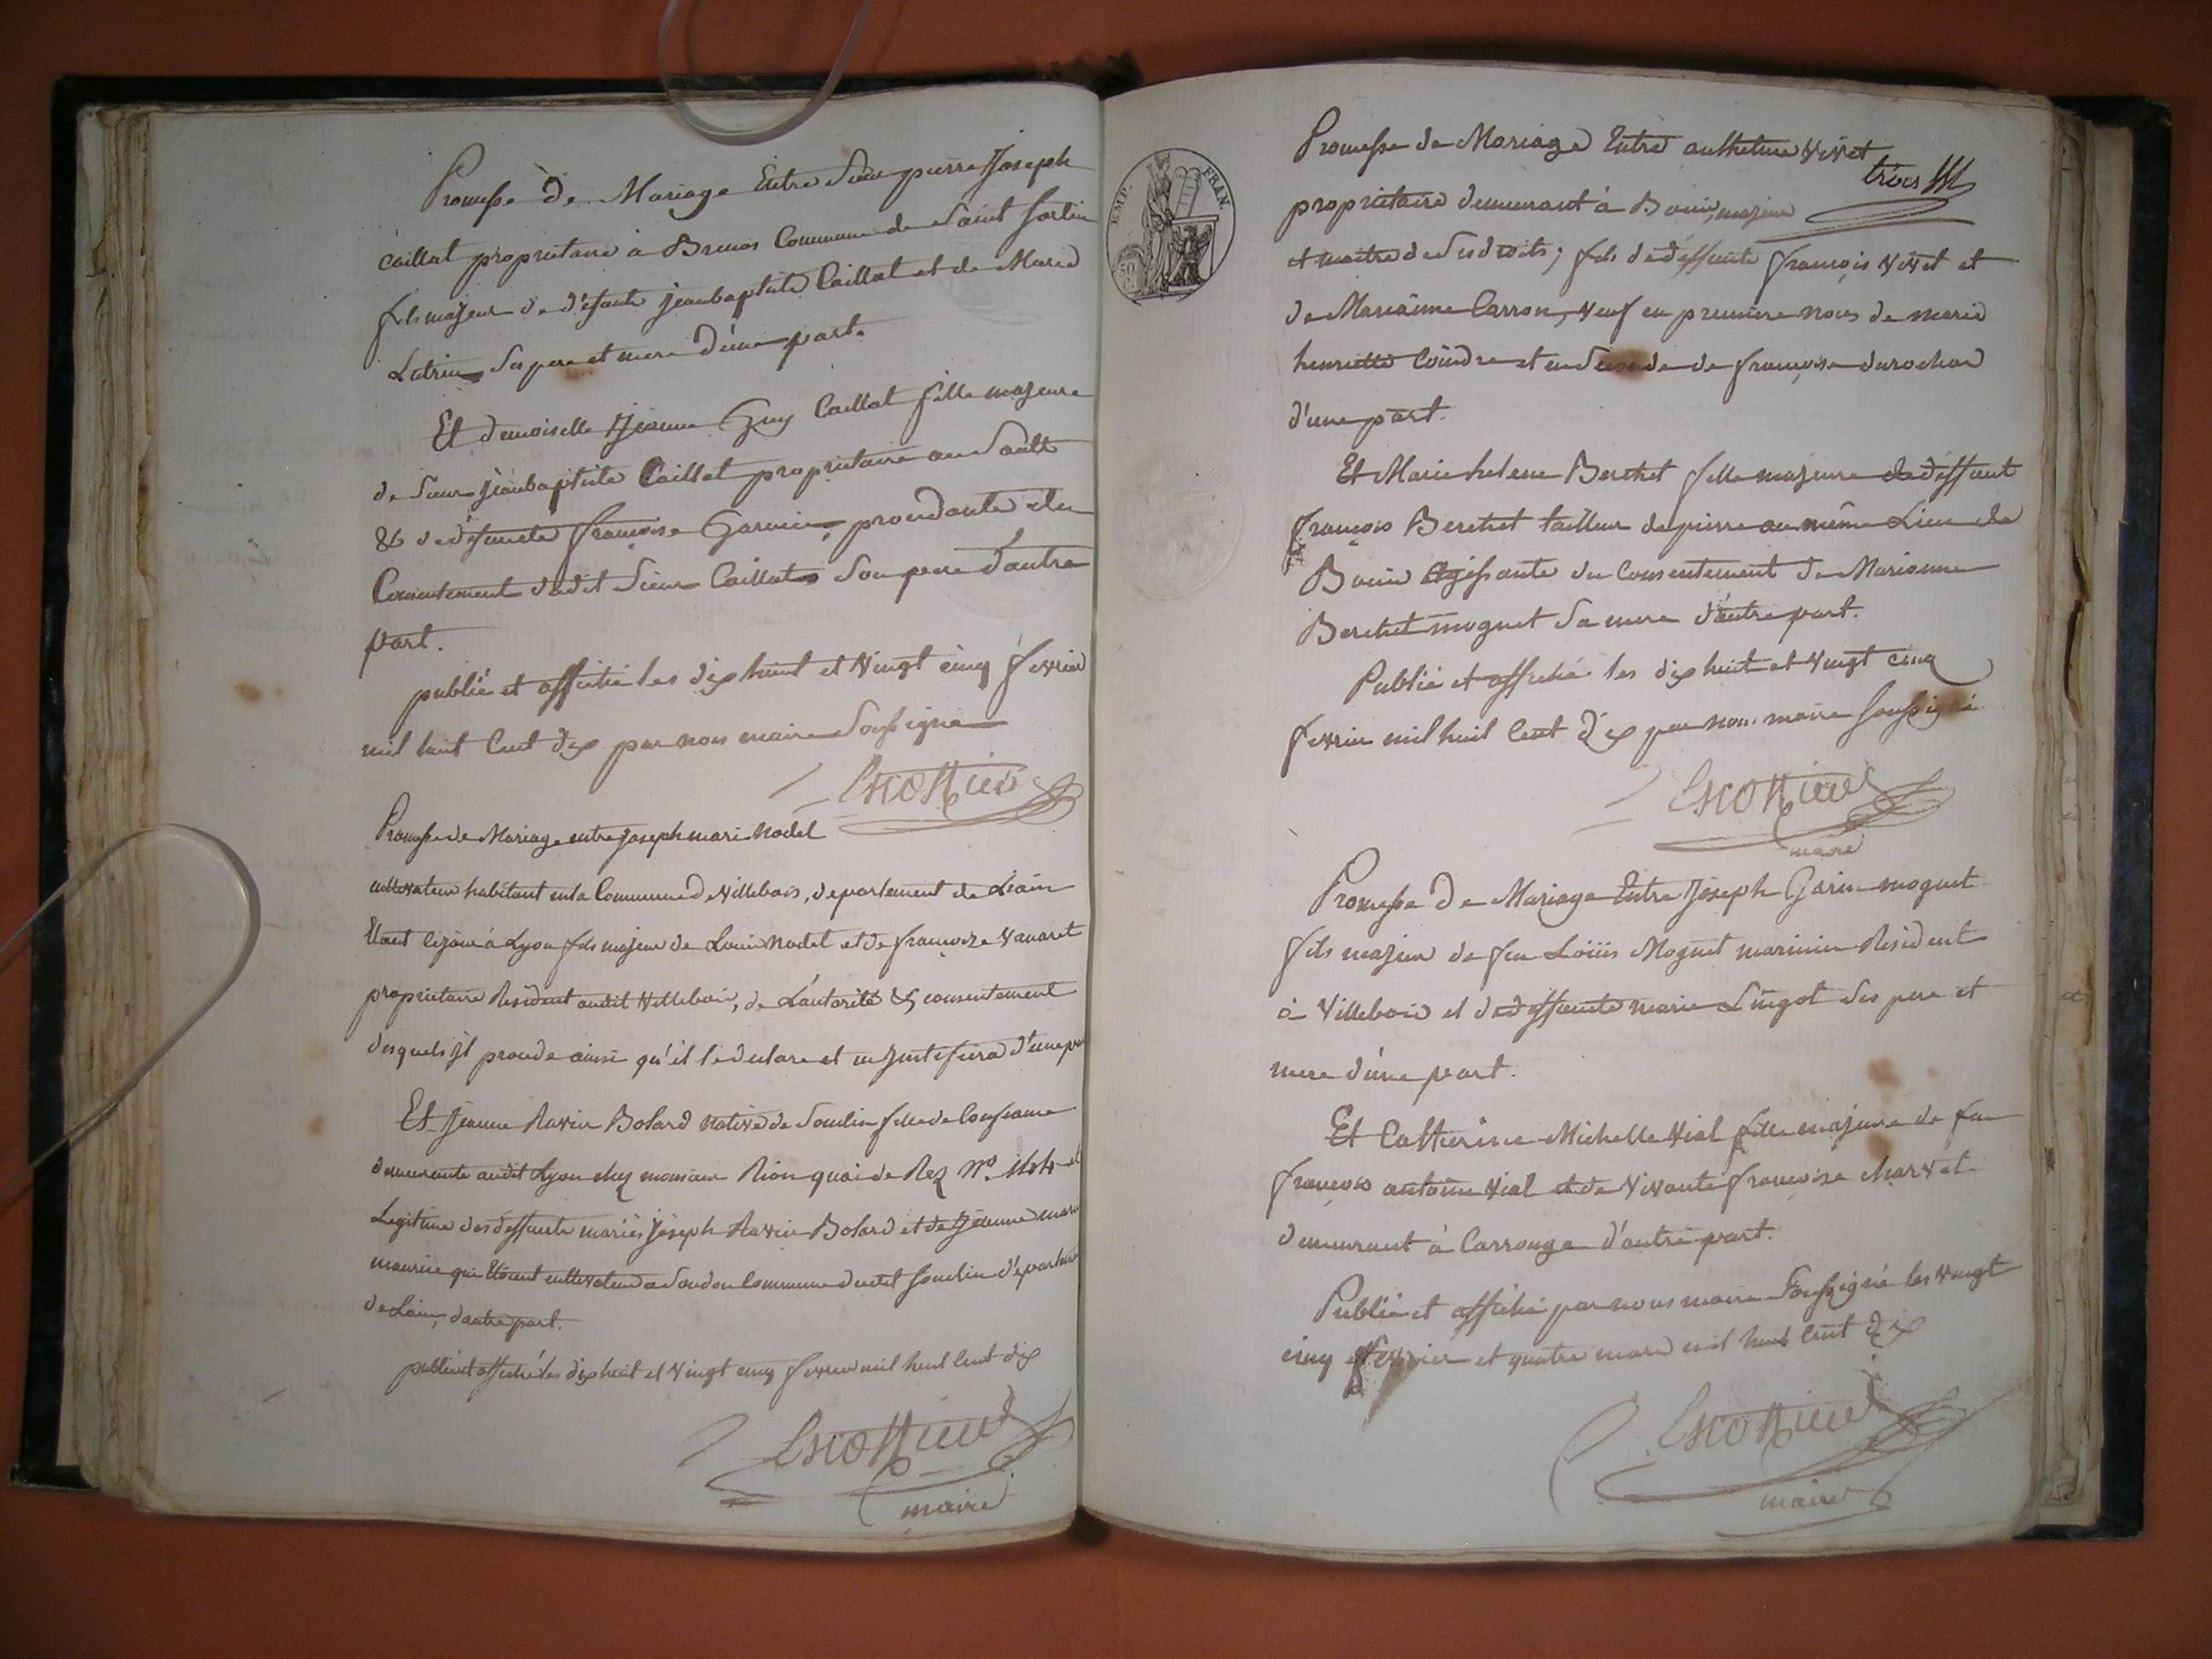 Promesse de Mariage Entre Sieur pierre Joseph
Caillat propriétaire à Commune de Saint Sorlin
fils majeur de défunts jeanbaptiste Caillat et de Marie
ses pere et mere d'une part.
Et demoiselle Jeanne Guy Caillat fille majeure
de Sieur jeanbaptiste Caillat propriétaire au Sault
& de défuncte françoise procedante du
Consentement dudit Sieur Caillat son pere d'autre
part.
publié et affiché les dix huit et vingt cinq fevrier
mil huit Cent dix par nous maire Soussigné
Escoffier
Promesse de Mariage entre joseph marie Nodet
cultivateur habitant en la Commune de Villebois, departement de Lain
Etant à Lyon fils majeur de Louis Nodet et de françoise Vavaret
propriétaire Résident audit Villebois, de L'autorité & consentement
desquels jl procede ainsi qu'il le declare et en justifiera d'une
Et Jeanne Ravier Bolard native de Soudon fille de Confiance
demeurante audit Lyon chez monsieur quai de Rez No.
Legitime des deffunts mariés joseph Ravier Bolard et de Jeanne
maurice qui Etoient cultivateurs a Soudon Commune dudit
de Lain, d'autre part.
publié et affiché les dix huit et vingt cinq fevrier mil huit Cent dix
Escoffier
maire
EMP. FRAN.
50
trois
Promesse de Mariage Entre anthelme Vivet
propriétaire demeurant à Bouis, majeur
et maitre de ses droits; fils de deffunts françois Vivet et
de Marianne Carron, Veuf en premiere noces de marie
henriette Coindre et en Seconde de françoise durochat
d'une part.
Et Marie helene Berchet fille majeure de deffunt
françois Berchet tailleur de pierre au même Lieu de
Bouis agissante du Consentement de Marianne
Berchet moguet Sa mere d'autre part.
Publié et affiché les dix huit et vingt cinq
fevrier mil huit Cent dix par nous maire soussigné
Escoffier
maire
Promesse de Mariage Entre Joseph Garin moguet
fils majeur de feu Loüis Moguet marinier Résident
à Villebois et de deffuncte marie Lingot ses pere et
mere d'une part.
Et Catherine Michelle Vial fille majeure de feu
françois antoine Vial et de Vivante françoise charvet
demeurant à Carrouge d'autre part.
Publié et affiché par nous maire Soussigné les vingt
cinq fevrier et quatre mars mil huit Cent dix
Escoffier
maire